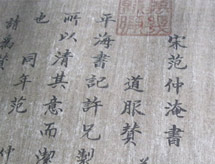 宋范仲淹書
道服赞
平海書記許兄製
所以清其意而潔
也 同年范
仲